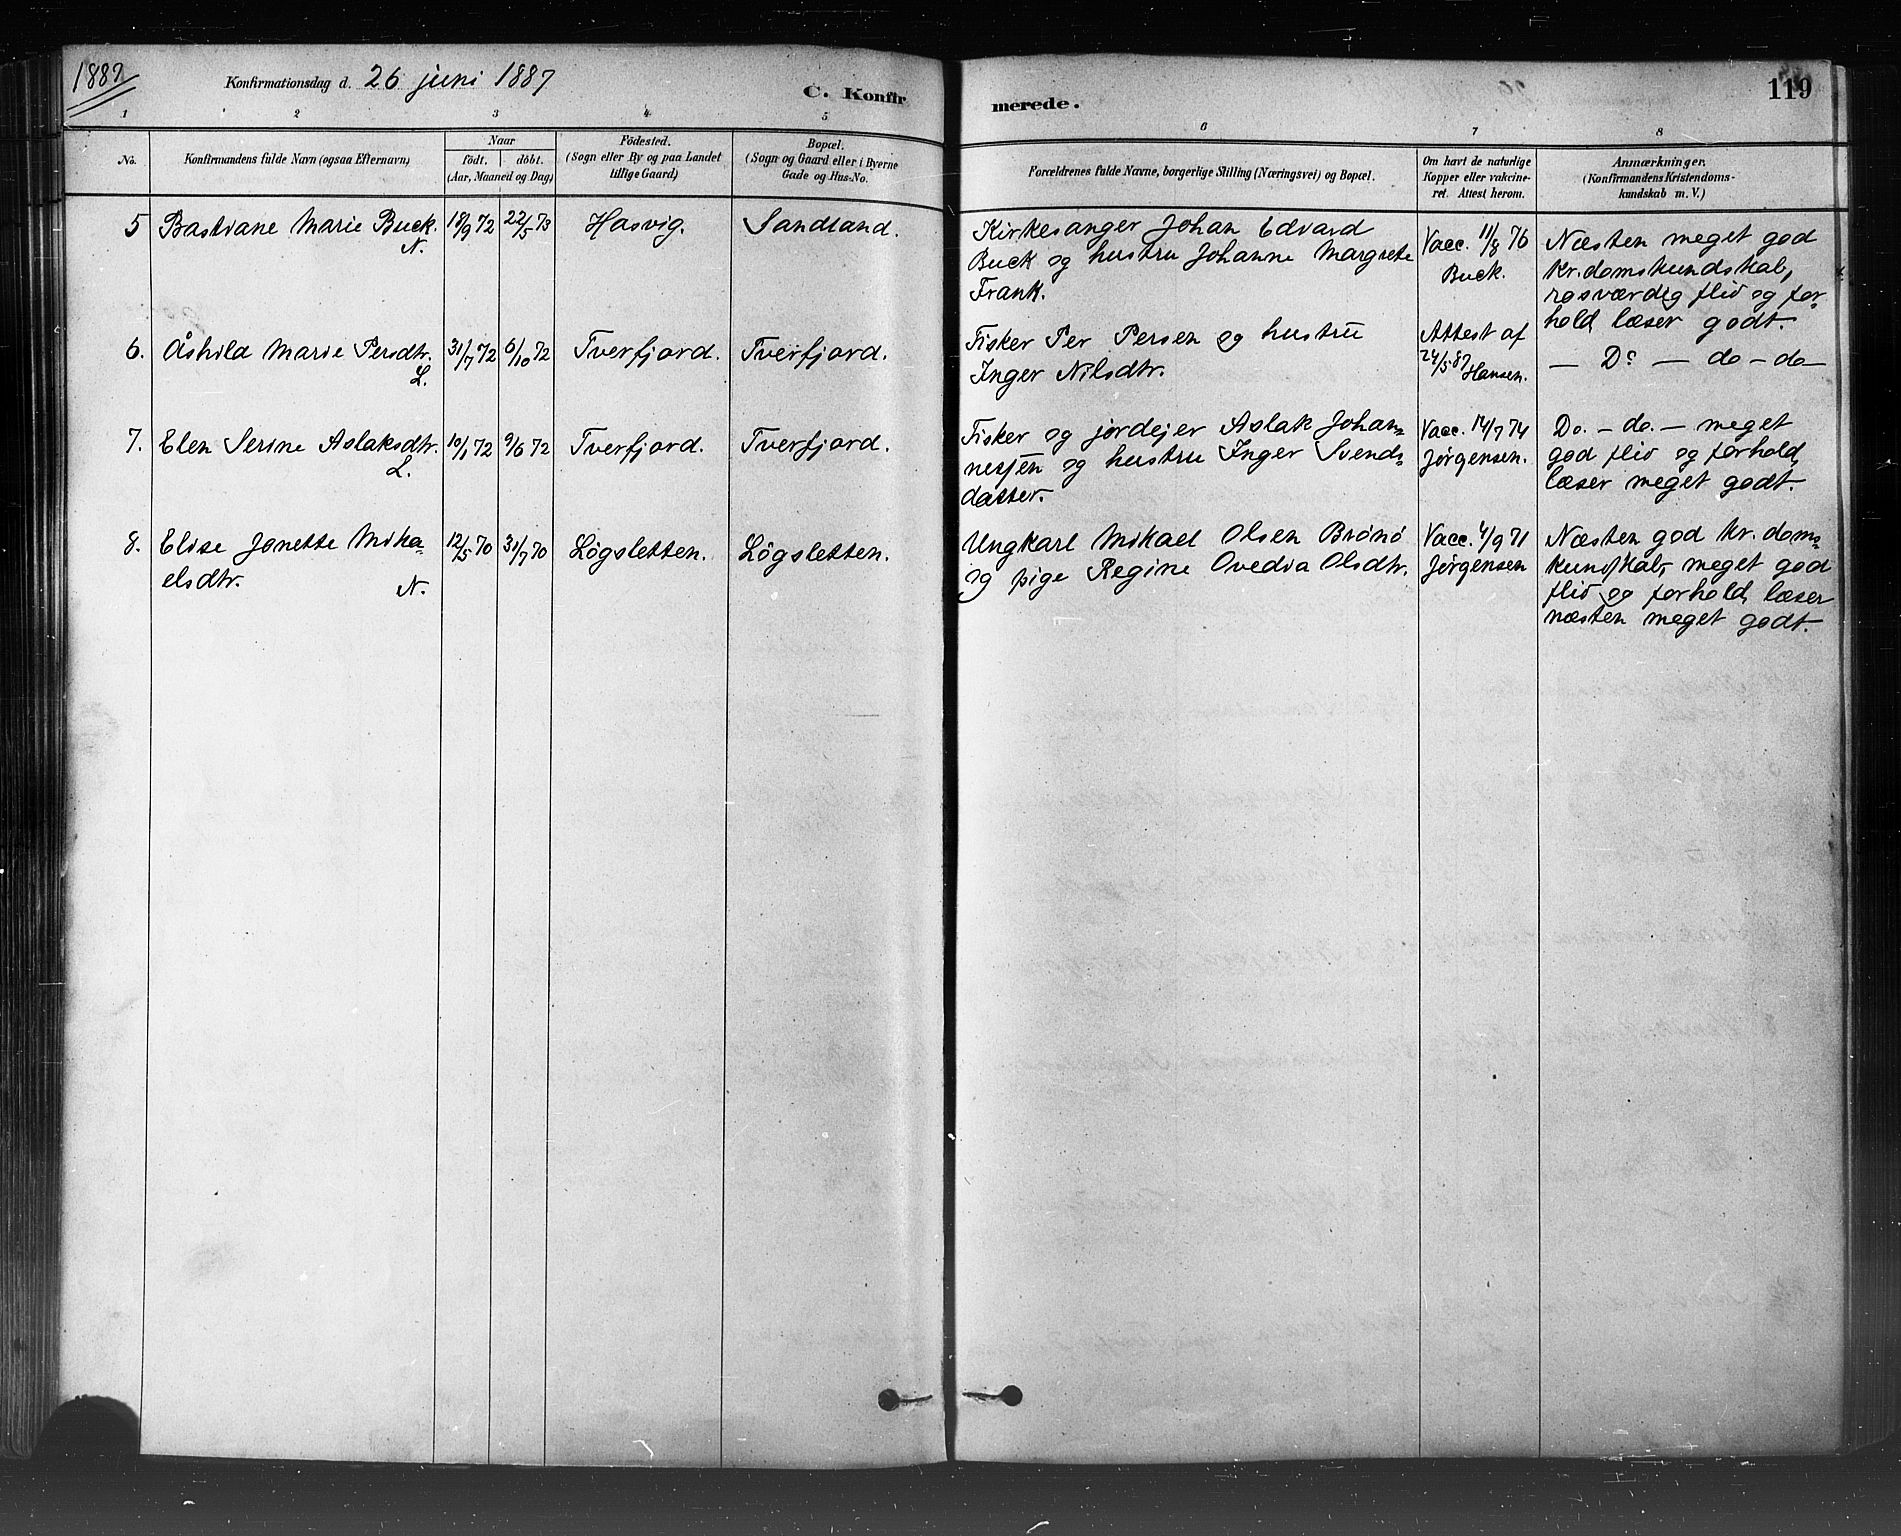 1887
Konfirmationsdag d. 26 juni 1887
C. Konfirmerede.
119
1 2 3 4 5 6 7 8
No.
Konfirmandens fulde Navn (ogsaa Efternavn)
Naar
födt. döbt.
(Aar, Maaned og Dag)
Födested.
(Sogn eller By og paa Landet
tillige Gaard)
Bopæl.
(Sogn og Gaard eller i Byerne
Gade og Hus-No.
Forældrenes fulde Navne, borgerlige Stilling (Næringsvei) og Bopæl.
Om havt de naturlige
Kopper eller vakcine-
ret. Attest herom.
Anmærkninger.
(Konfirmandens Kristendoms-
kundskab m. V.)
5 Bastiane Marie Buck.
N.
18/9 72 22/5 73 Hasvig. Sandland.
Kirkesanger Johan Edvard
Buck og hustru Johanne Margrete
Frank.
Vacc. 11/8 76
Buck.
Næsten meget god
kr.domskundskab,
rosværdig flid og for-
hold, læser godt.
6. Åshild Marie Persdtr.
L.
31/7 72 6/10 72 Tverfjord. Tverfjord.
Fisker Per Persen og hustru
Inger Nilsdtr.
Attest af
24/5 87 Hansen.
— Do — do — do —
7. Elen Serine Aslaksdtr.
L.
10/1 72 9/6 72 Tverfjord. Tverfjord.
Fisker og jordejer Aslak Johan-
nesjen og hustru Inger Svends-
datter.
Vacc. 14/7 74
Jørgensen.
Do. — do. — meget
god flid og forhold,
læser meget godt.
8. Elise Jonette Mika-
elsdtr.
N.
12/5 70 31/7 70 Lögsletten. Lögsletten.
Ungkarl Mikael Olsen Brønø
og pige Regine Ovedia Olsdtr.
Vacc. 4/9 71
Jørgensen
Næsten god kr. doms-
kundskab, meget god
flid og forhold, læser
næsten meget godt.